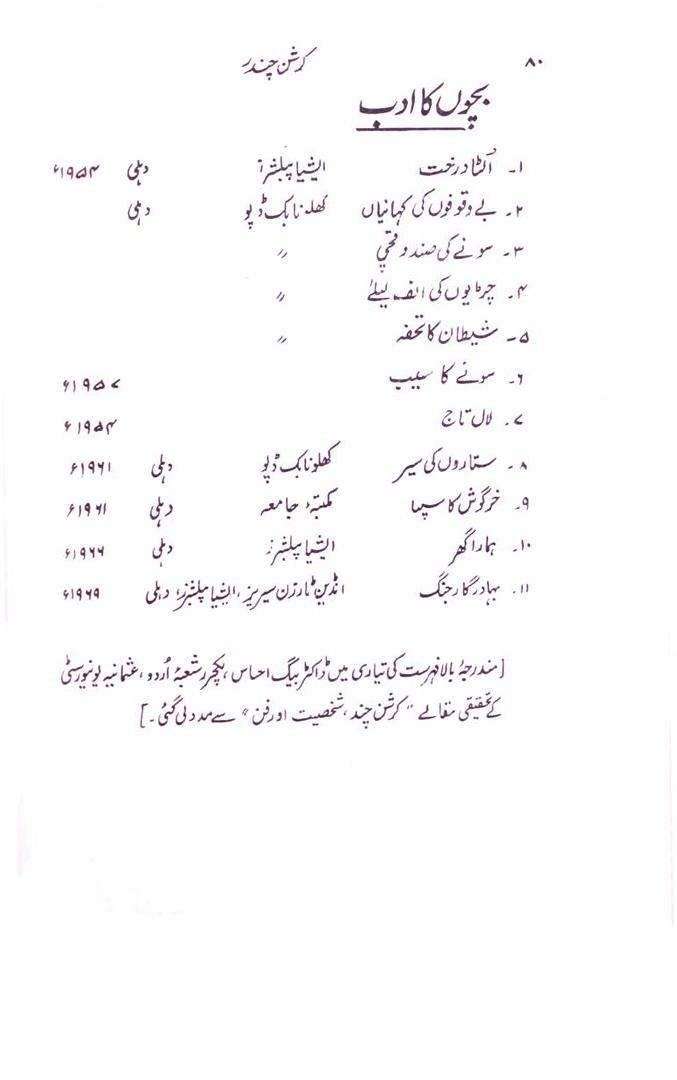 ۸۰ کرشن چندر
بچوں کا ادب
۱۔ اُلٹا درخت ایشیا پبلشرز دہلی ۱۹۵۴ء
۲۔ بے وقوفوں کی کہانیاں کھلونا بک ڈپو دہلی
۳۔ سونے کی صندوقچی 〃
۴۔ چڑیوں کی الف لیلےٰ 〃
۵۔ شیطان کا تحفہ 〃
۶۔ سونے کا سیب ۱۹۵۷ء
۷۔ لال تاج ۱۹۵۴ء
۸۔ ستاروں کی سیر کھلونا بک ڈپو دہلی ۱۹۶۱ء
۹۔ خرگوش کا سپنا مکتبۂ جامعہ دہلی ۱۹۶۱ء
۱۰۔ ہمارا گھر ایشیا پبلشرز دہلی ۱۹۶۶ء
۱۱۔ بہادر گارجنگ انڈین ٹارزن سیریز، ایشیا پبلشرز، دہلی ۱۹۶۹ء
[مندرجۂ بالا فہرست کی تیاری میں ڈاکٹر بیگ احساس، لکچرر شعبۂ اُردو، عثمانیہ یونیورسٹی
کے تحقیقی مقالے "کرشن چند، شخصیت اور فن" سے مدد لی گئی۔]